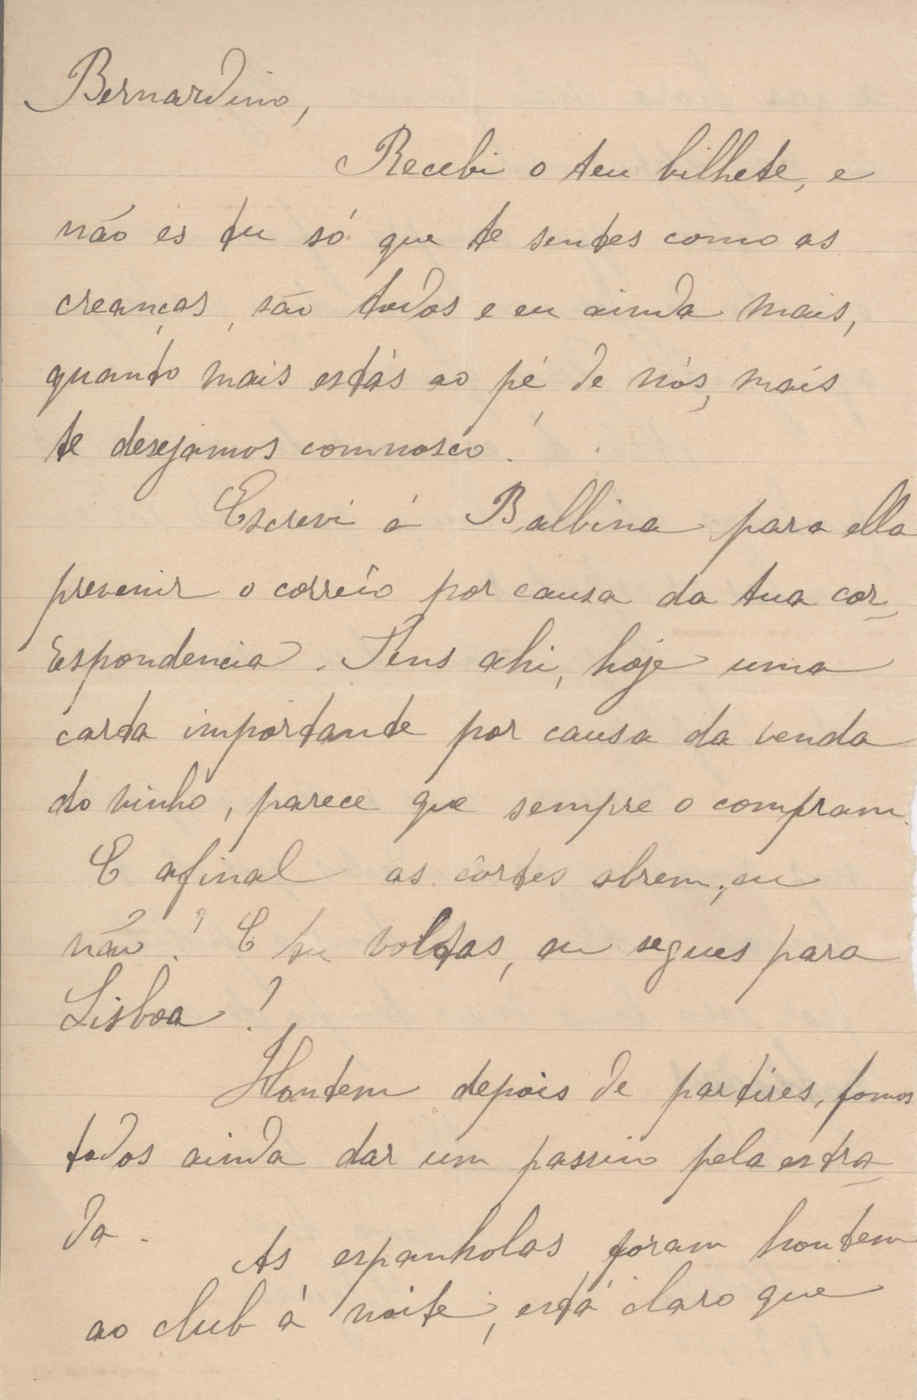 Bernardino,
Recebi o teu bilhete, e
não és tu só que te sentes como as
creanças, são todos e eu ainda mais,
quanto mais estás ao pé de nós, mais
te desejamos comnosco!
Escrevi á Balbina para ella
prevenir o correio por causa da tua cor-
espondencia. Tens ahi, hoje uma
carta importante por causa da venda
do vinho, parece que sempre o compram.
E afinal as côrtes abrem, ou
não? E tu voltas, ou segues para
Lisboa?
Hontem depois de partires, fomos
todos ainda dar um passeio pela estra-
da.
As espanholas foram hontem
ao club á noite, está claro que